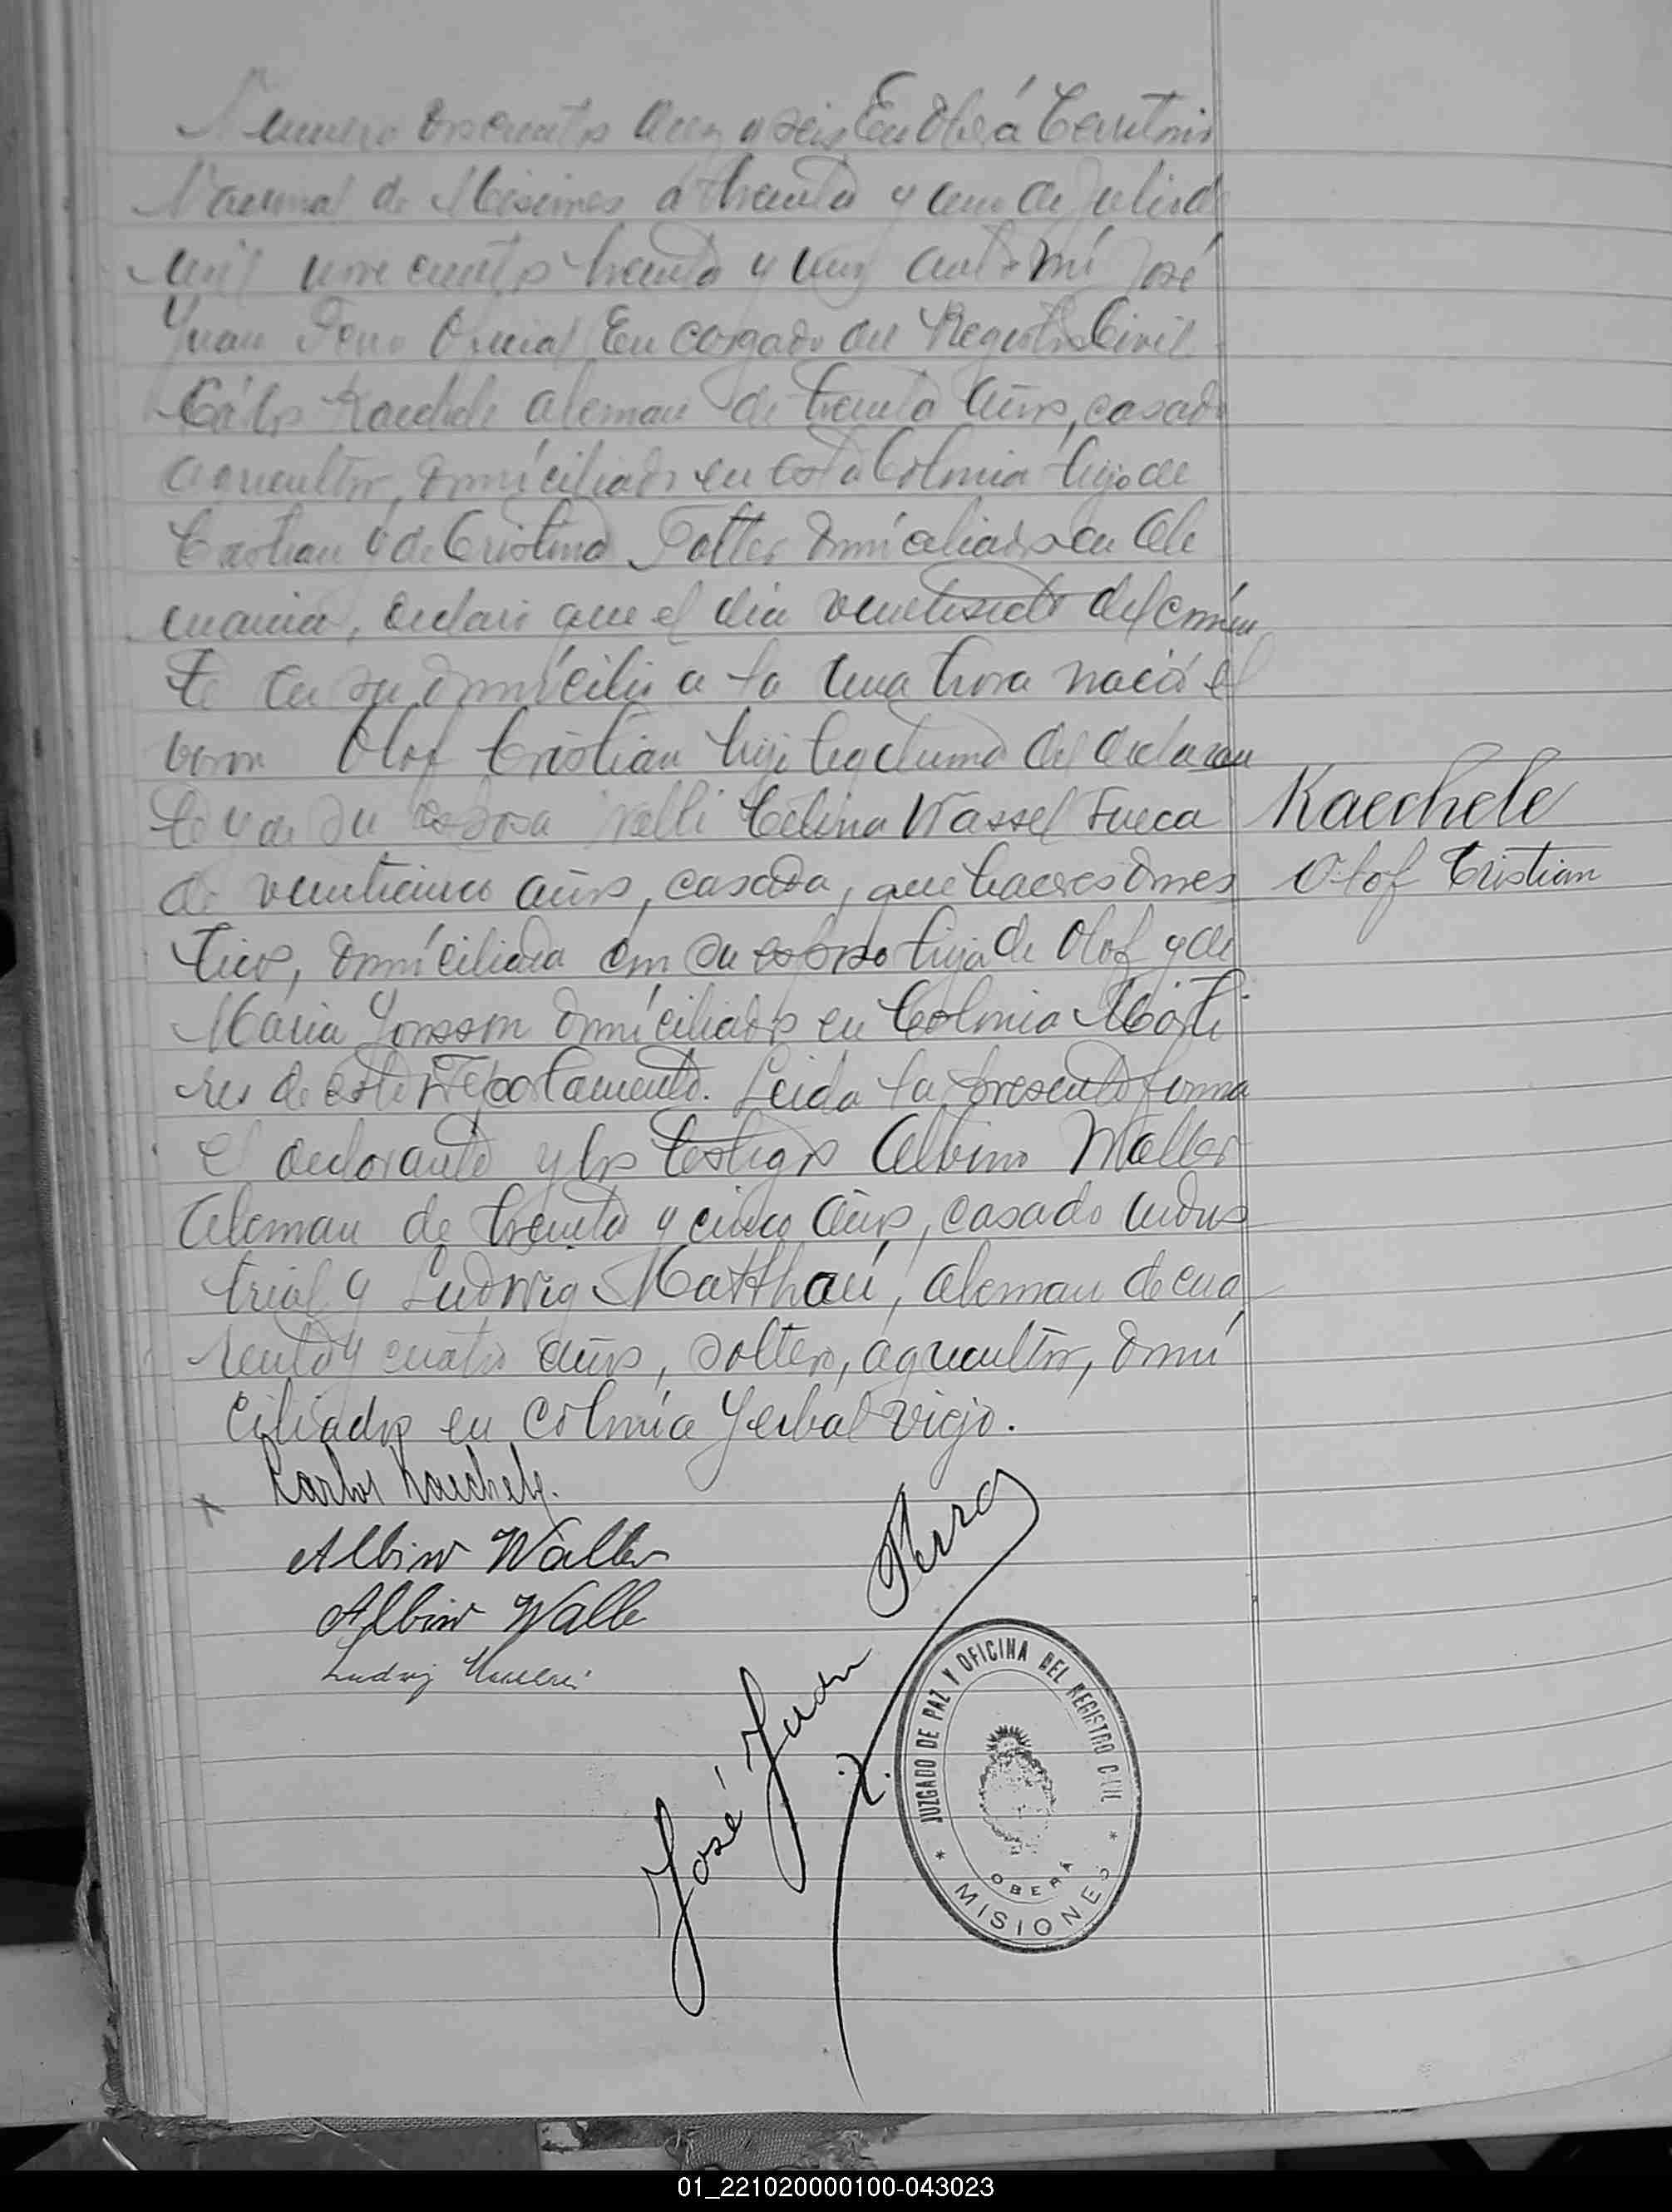 Numero doscientos diez y seis En Oberá Territorio
Nacional de Misiones á treinta y uno de Julio de
mil novecientos treinta y uno ante mí José
Juan Perro Oficial Encargado del Registro Civil
Cárlos Kaechele aleman de treinta años, casado
agricultor, domiciliado en esta Colonia hijo de
Cristian y de Cristina domiciliados en Ale
mania, declaró que el dia veintisiete del corrien
te en su domicilio a la una hora nació el
varon Olof Cristian hijo legitimo del declaran
te y de su esposa Nelli Celina Wassel sueca
de veinticinco años, casada, quehaceres domes
ticos, domiciliada con su esposo hija de Olof y de
Maria Jonsson domiciliados en Colonia Márti
res de este Departamento. Leida la presente firma
el declarante y los testigos Albino Waller
aleman de treinta y cinco años, casado indus
trial y Ludwig Matthaü, aleman de cua
renta y cuatro años, soltero, agricultor, domi
ciliados en Colonia Yerbal viejo.
Kaechele
Olof Cristian
Karlos Kaechele.
Albino Waller
Albino Walle
Ludwig
José Juan
JUZGADO DE PAZ Y OFICINA DEL REGISTRO CIVIL
OBERÁ
* MISIONES *
01_221020000100-043023